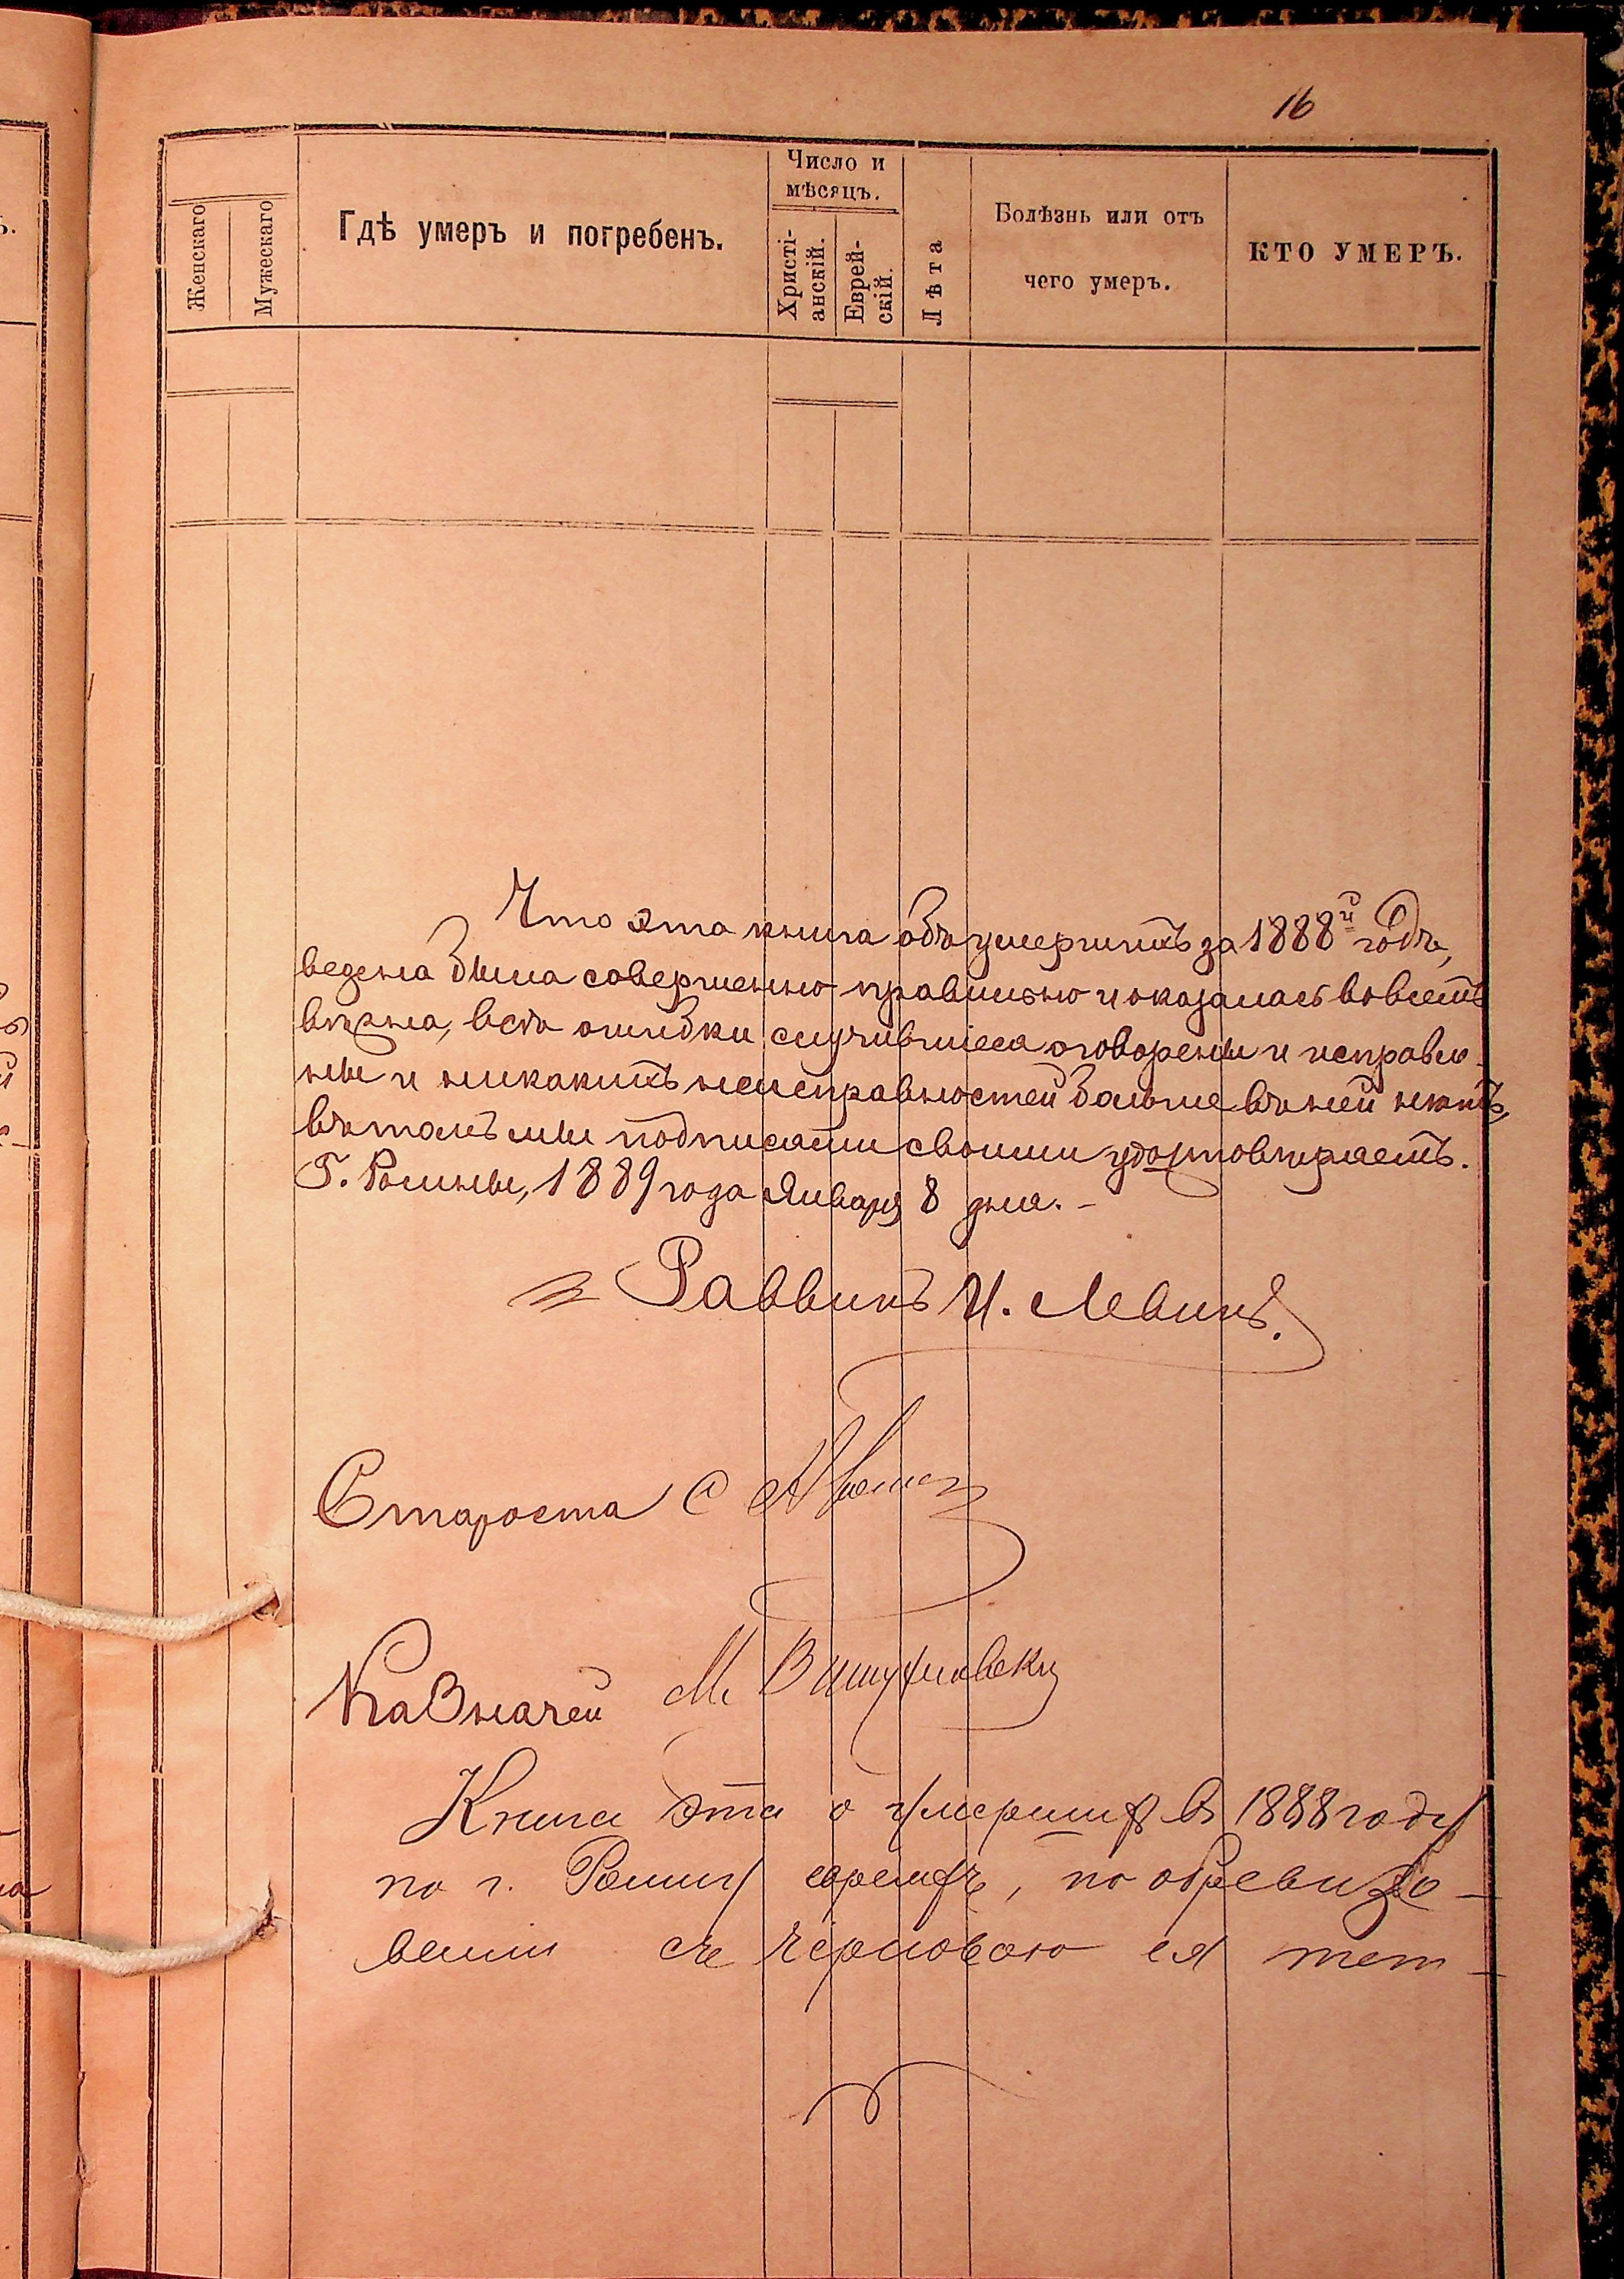 16
Число и
мѣсяцъ.
Женскаго
Мужескаго
Гдѣ умеръ и погребенъ.
Христі-
анскій.
Еврей-
скій.
Лѣта
Болѣзнь или отъ
чего умеръ.
КТО УМЕРЪ.
Что эта книга объ умершихъ за 1888й годъ,
ведена была совершенно правильно и оказалась во всемъ
вѣрна, всѣ ошибки случившіеся оговорены и исправле-
ны и никакихъ неисправностей больше въ ней нѣтъ,
въ томъ мы подписями своими удостовѣряемъ.
Г. Ромны, 1889 года Января 8 дня. -
Раввинъ И. Левинъ.
Староста С
Казначей М.
Книга эта о умершихъ въ 1888 году
по г. Ромну евреяхъ, по обревизо-
ваніи съ черновою ея тет-